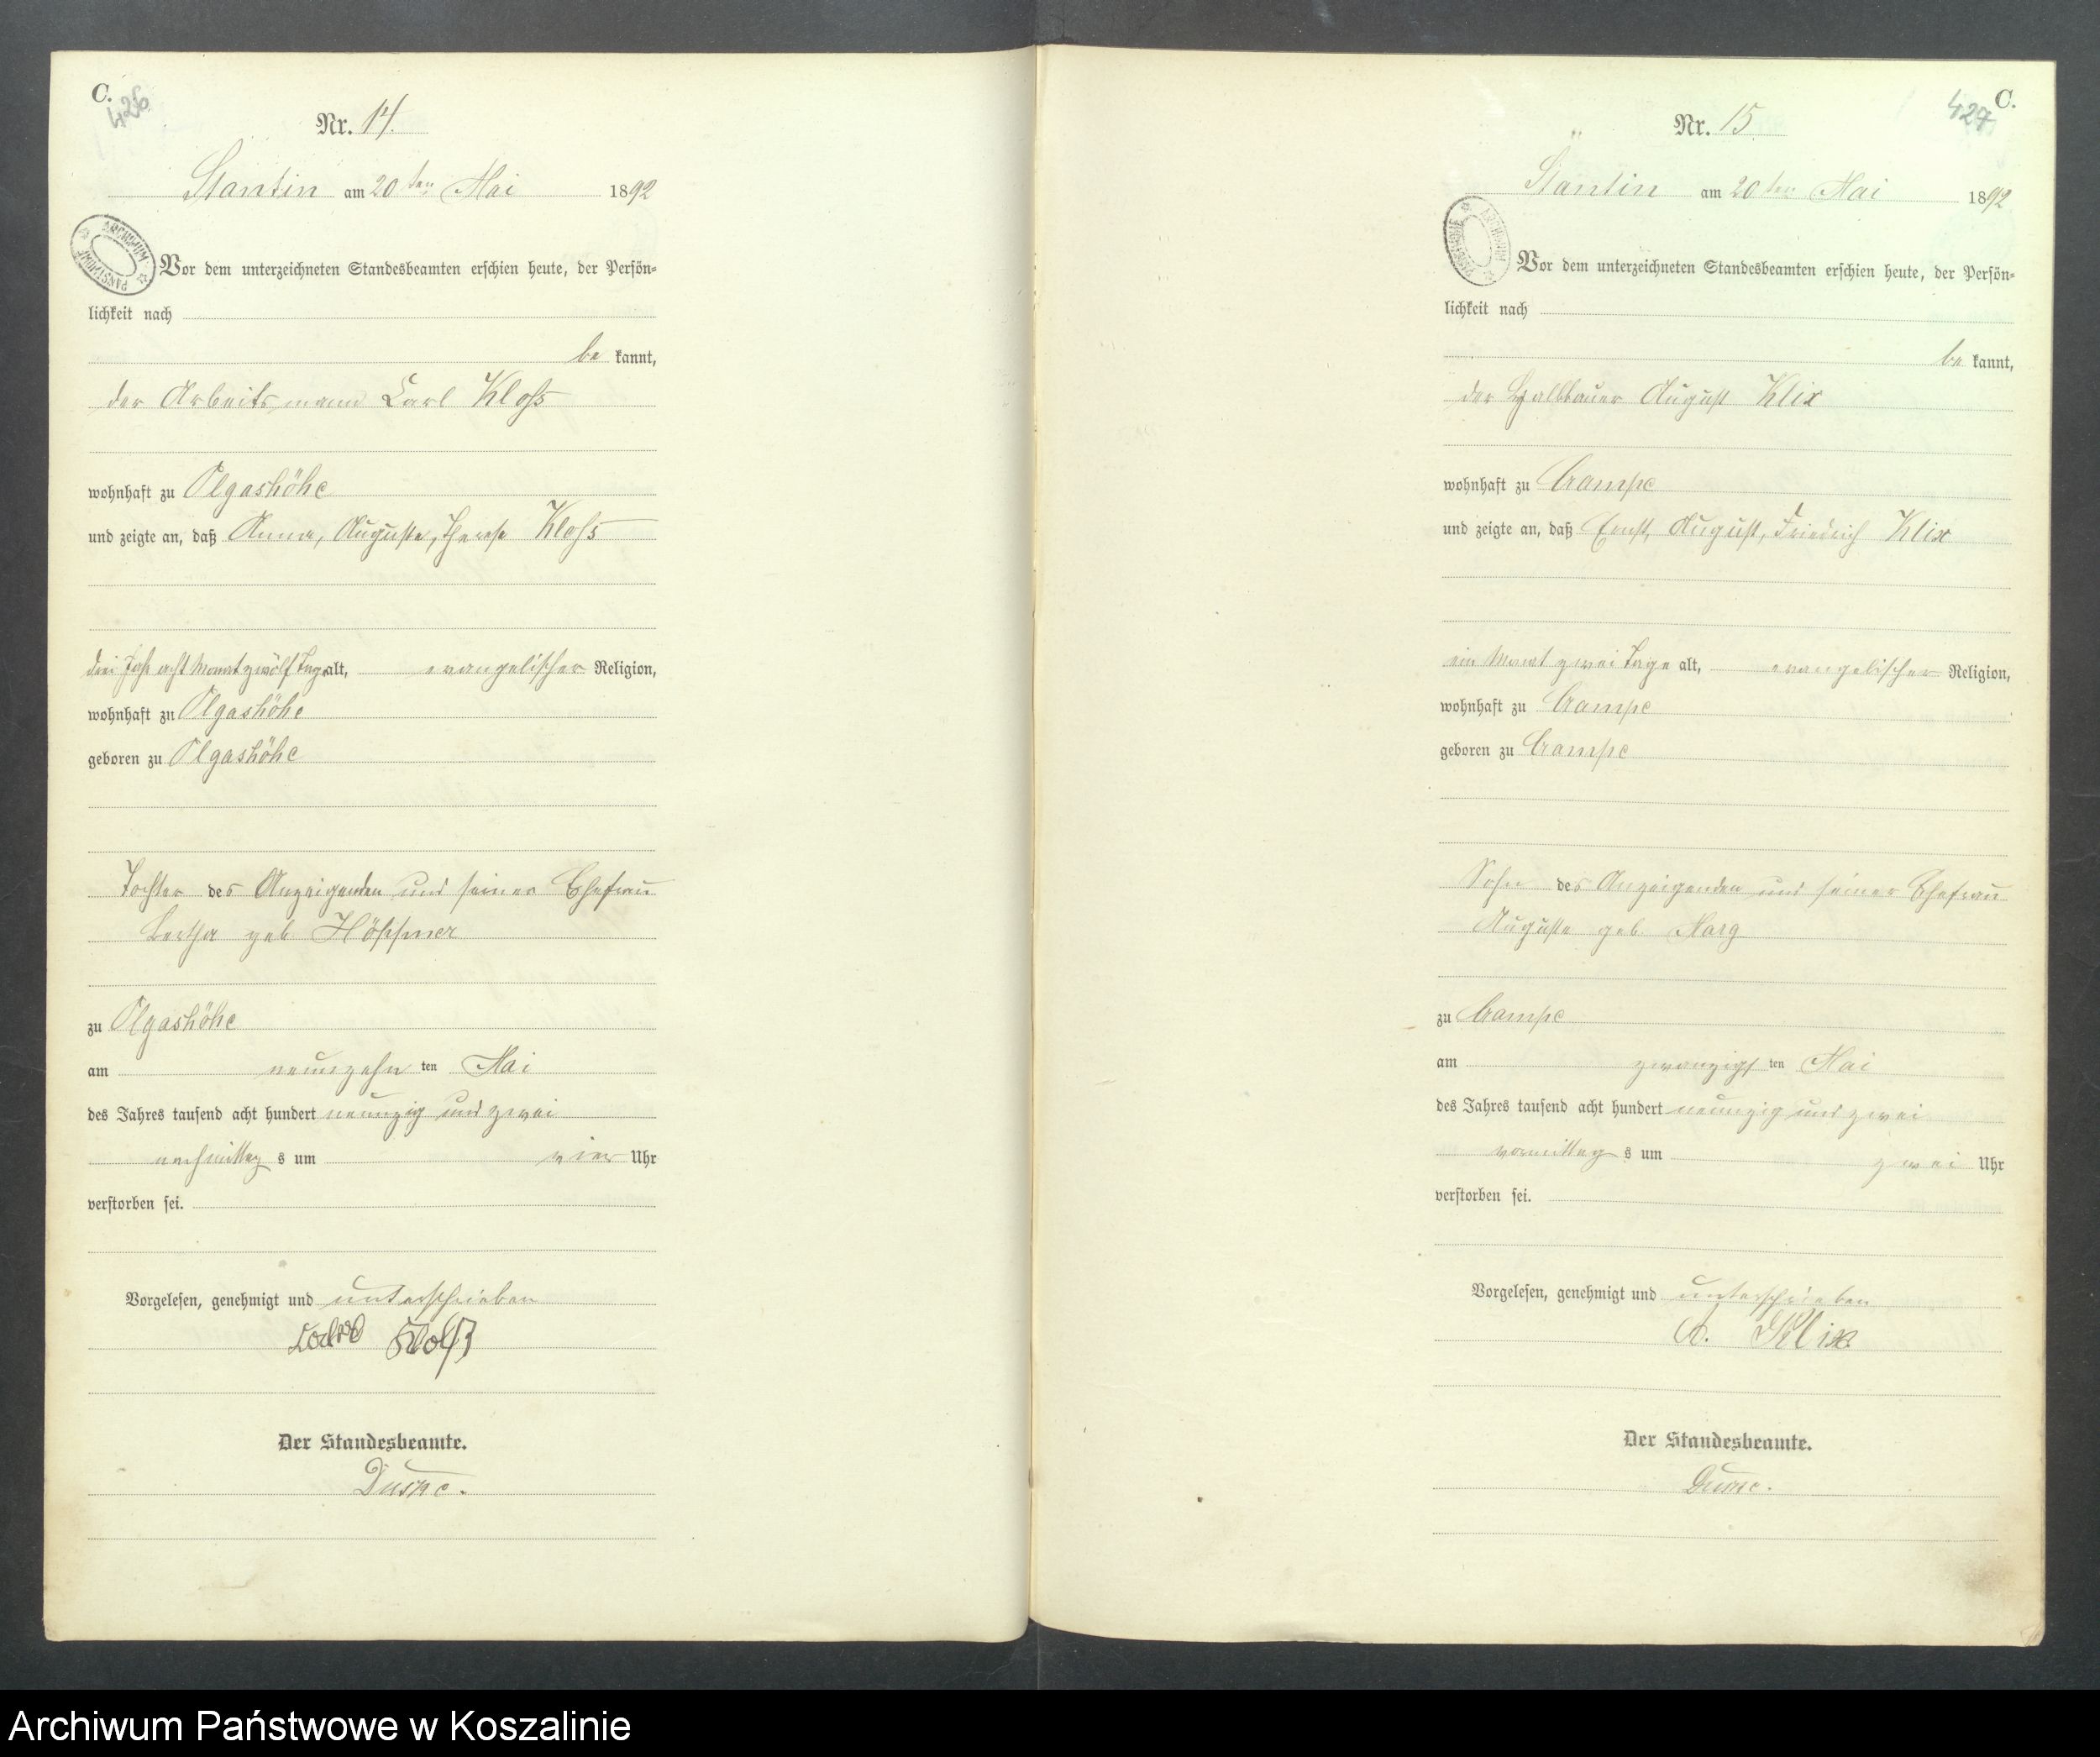 C.
426
Nr. 14.
Stantin am 20ten Mai 1892
ARCHIWUM PAŃSTWOWE
Vor dem unterzeichneten Standesbeamten erschien heute, der Persön-
lichkeit nach
be kannt,
der Arbeitsmann Carl Kloß
wohnhaft zu Olgashöhe
und zeigte an, daß Anna, Auguste, Therese Kloß
drei Jahr acht Monat zwölf Tage alt, evangelischer Religion,
wohnhaft zu Olgashöhe
geboren zu Olgashöhe
Tochter des Anzeigenden und seiner Ehefrau
Bertha geb Höppner
zu Olgashöhe
am neunzehn ten Mai
des Jahres tausend acht hundert neunzig und zwei
nachmittag s um vier Uhr
verstorben sei.
Vorgelesen, genehmigt und unterschrieben
Kloß
Der Standesbeamte.
C.
427
Nr. 15
Stantin am 20ten Mai 1892
ARCHIWUM PAŃSTWOWE
Vor dem unterzeichneten Standesbeamten erschien heute, der Persön-
lichkeit nach
be kannt,
der Halbbauer August Klix
wohnhaft zu Crampe
und zeigte an, daß Ernst, August, Friedrich Klix
ein Monat zwei Tage alt, evangelischer Religion,
wohnhaft zu Crampe
geboren zu Crampe
Sohn des Anzeigenden und seiner Ehefrau
Auguste geb. Marg
zu Crampe
am zwanzigs ten Mai
des Jahres tausend acht hundert neunzig und zwei
vormittag s um zwei Uhr
verstorben sei.
Vorgelesen, genehmigt und unterschrieben
A. Klix
Der Standesbeamte.
Archiwum Państwowe w Koszalinie